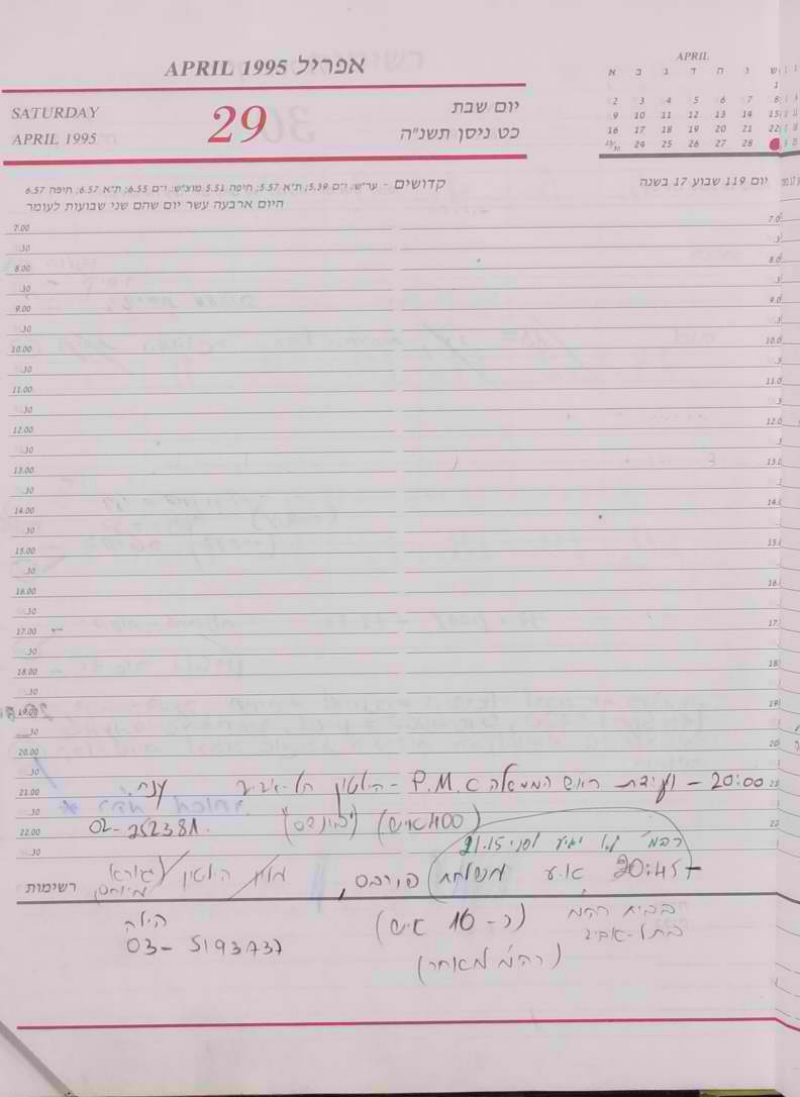 אפריל APRIL 1995
SATURDAY
APRIL 1995
29
יום שבת
כט ניסן תשנ"ה
APRIL
א ב ג ד ה ו ש
1
2 3 4 5 6 7 8
9 10 11 12 13 14 15
16 17 18 19 20 21 22
23/30 24 25 26 27 28
יום 119 שבוע 17 בשנה
קדושים - ער"ש: י-ם 5.39; ת"א 5.57; חיפה 5.51 מוצ"ש: י-ם 6.55; ת"א 6.57; חיפה 6.57
היום ארבעה עשר יום שהם שני שבועות לעומר
7.00
.30
8.00
.30
9.00
.30
10.00
.30
11.00
.30
12.00
.30
13.00
.30
14.00
.30
15.00
.30
16.00
.30
17.00
.30
18.00
.30
19.00
.30
20.00
.30
21.00
.30
22.00
.30
20:00 - ועידת ראש הממשלה P.M.C - הילטון תל-אביב ענת
(400 איש) 02-252381
רהמ' יגיע לפני 21.15
20:45 א.ע משלחת פורבס, מלון הילטון
רשימות
בבית רהמ (כ-16 איש) הילה
בתל-אביב 03-5193737
(רה"מ מאחר)